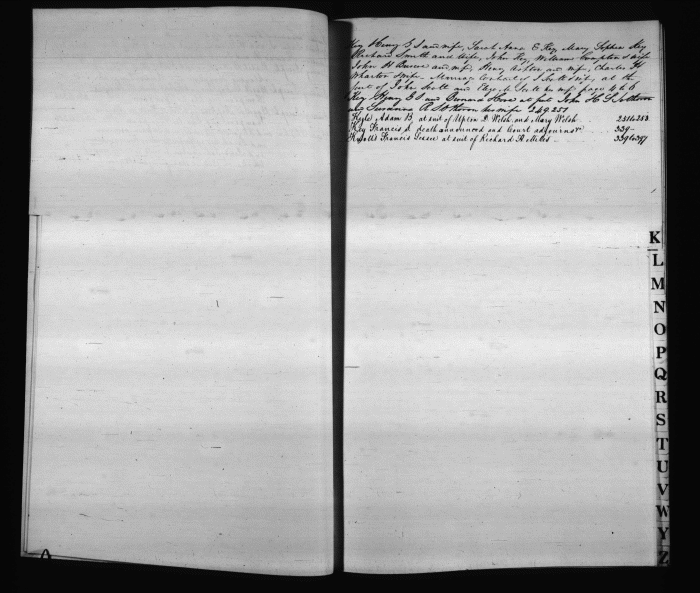 Key Henry G S and wife, Sarah Ann E Key, Mary Sophia Key
Richard Smith and Wife, John Key, William Compton & Wife
John H and wife, Henry and wife, Charles H
Wharton & wife, Marriage Contract of & wife, at the
suit of John Scott and Scott his wife page 4 to 6
Key Henry G S and at suit John H Sothoron
and Susanna R Sothoron his wife 249.250
Kyle Adam B. at suit of Upton D. Welsh, and Mary Welsh 251 to 253
Key Francis S death announced and Court adjourns 339
Francis Lessee at suit of Richard H. Miles 339 to 397
K
L
M
N
O
P
Q
R
S
T
U
V
W
Y
Z